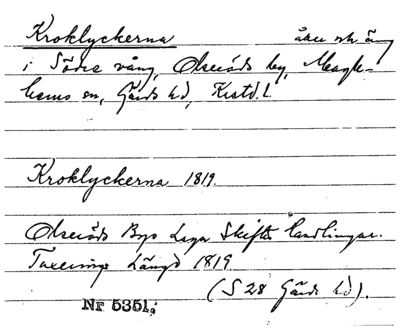 Kroklyckerna åker och äng
i Södra vång, Olseröds by, Magle-
hems sn, Gärds hd, Kristd. L.
Kroklyckerna 1819.
Olseröds Bys Laga Skiftes handlingar.
Taxerings Längd 1819.
(S 28 Gärds hd).
Nr 5351.